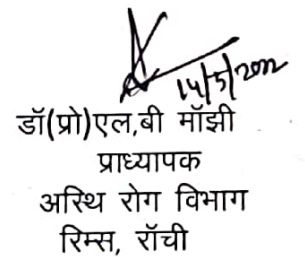 14/5/2022
डॉ(प्रो)एल,बी मॉझी
प्राध्यापक
अस्थि रोग विभाग
रिम्स, रॉची